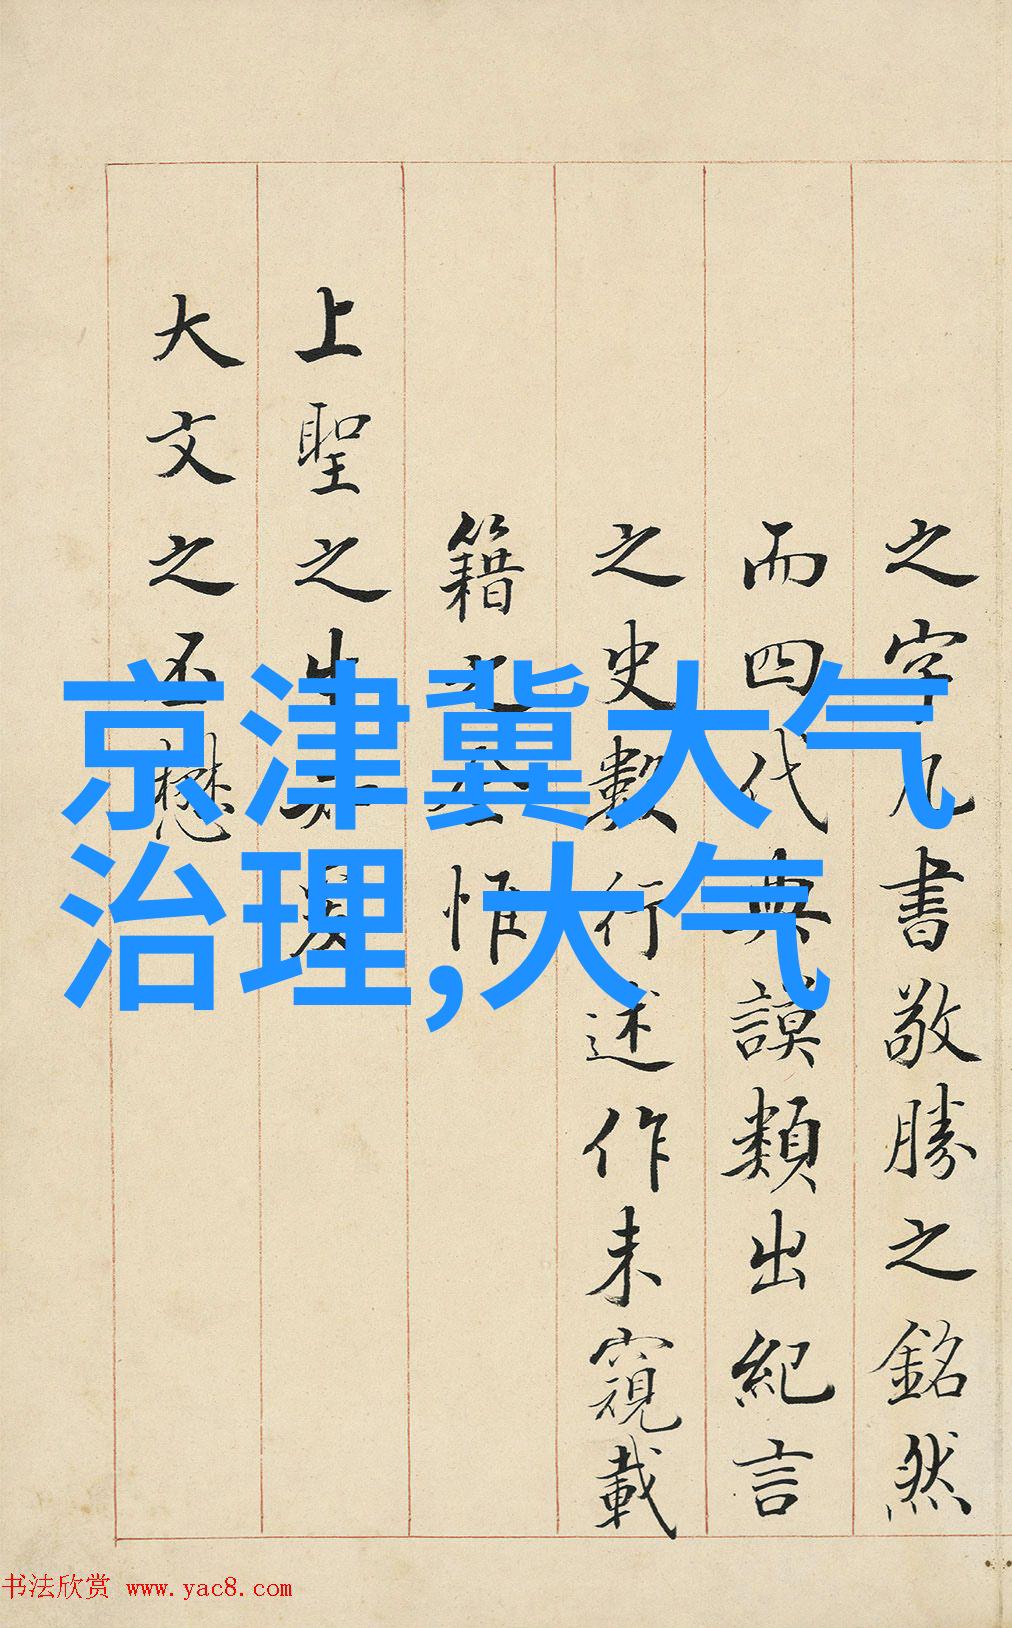 京津冀大气
治理,大气
之字凡書敬勝之銘然
而四代典謨類出紀言
之史數行述作未窺載
籍之全惟
上聖之生知爰
大文之丕懋
书法欣赏 www.yac8.com